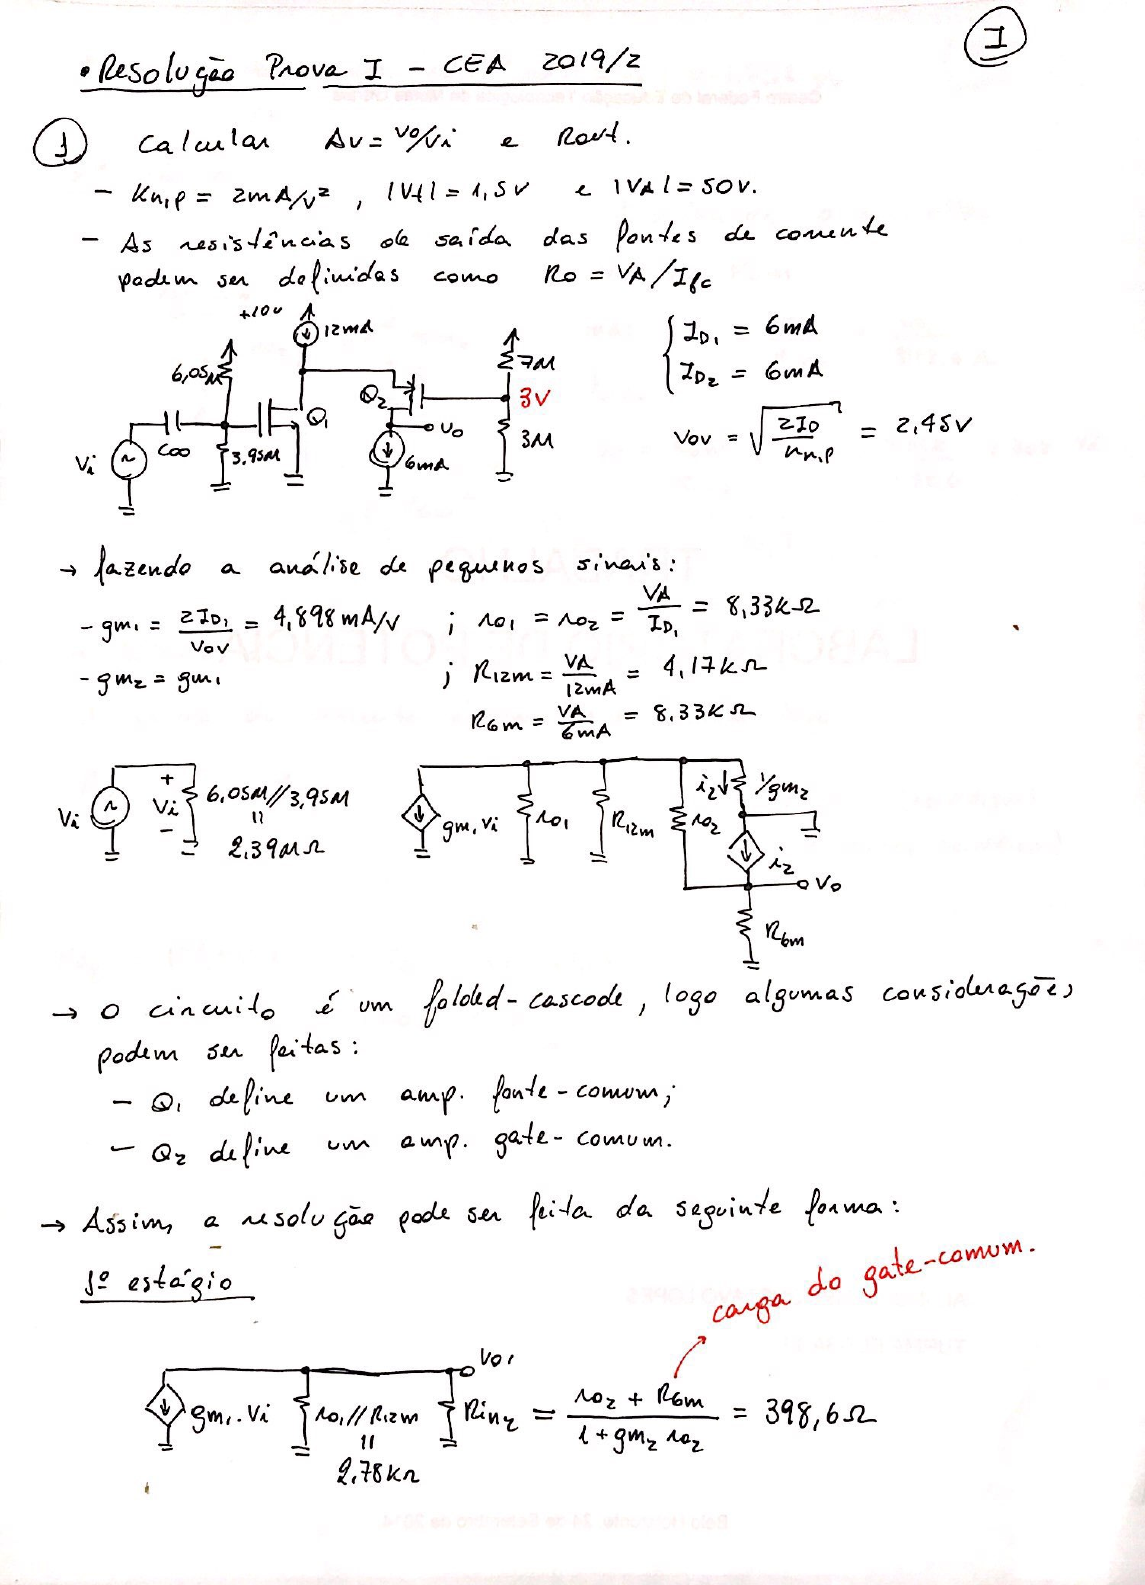 I
• Resolução Prova I - CEA 2019/2
1 Calcular Av = vo/vi e Rout.
- Kn,p = 2mA/V², |Vt| = 1,5V e |VA| = 50V.
- As resistências de saída das fontes de corrente
podem ser definidas como Ro = VA/Ifc
+10V
12mA
6,05M
Q1
Q2
7M
3V
3M
Vi
C∞
3,95M
Vo
6mA
ID1 = 6mA
ID2 = 6mA
Vov = √(2ID/Kn,p) = 2,45V
→ fazendo a análise de pequenos sinais:
- gm1 = 2ID1/Vov = 4,898mA/V ; ro1 = ro2 = VA/ID1 = 8,33kΩ
- gm2 = gm1 ; R12m = VA/12mA = 4,17kΩ
R6m = VA/6mA = 8,33kΩ
Vi
+
Vi
-
6,05M//3,95M
=
2,39MΩ
gm1 vi
ro1
R12m
ro2
i2
1/gm2
i2
Vo
R6m
→ O circuito é um folded-cascode, logo algumas considerações
podem ser feitas:
- Q1 define um amp. fonte-comum;
- Q2 define um amp. gate-comum.
→ Assim, a resolução pode ser feita da seguinte forma:
1º estágio
carga do gate-comum.
Vo1
gm1.Vi
ro1//R12m
=
2,78kΩ
Rin2 = (ro2 + R6m)/(1 + gm2 ro2) = 398,6Ω